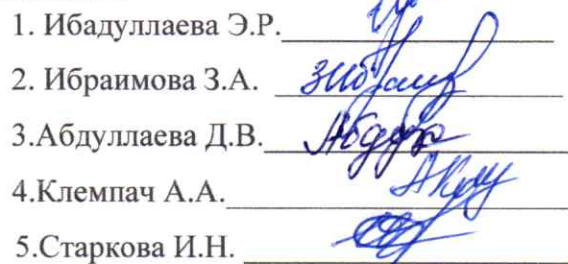 1. Ибадуллаева Э.Р.
2. Ибраимова З.А.
3.Абдуллаева Д.В.
4.Клемпач А.А.
5.Старкова И.Н.